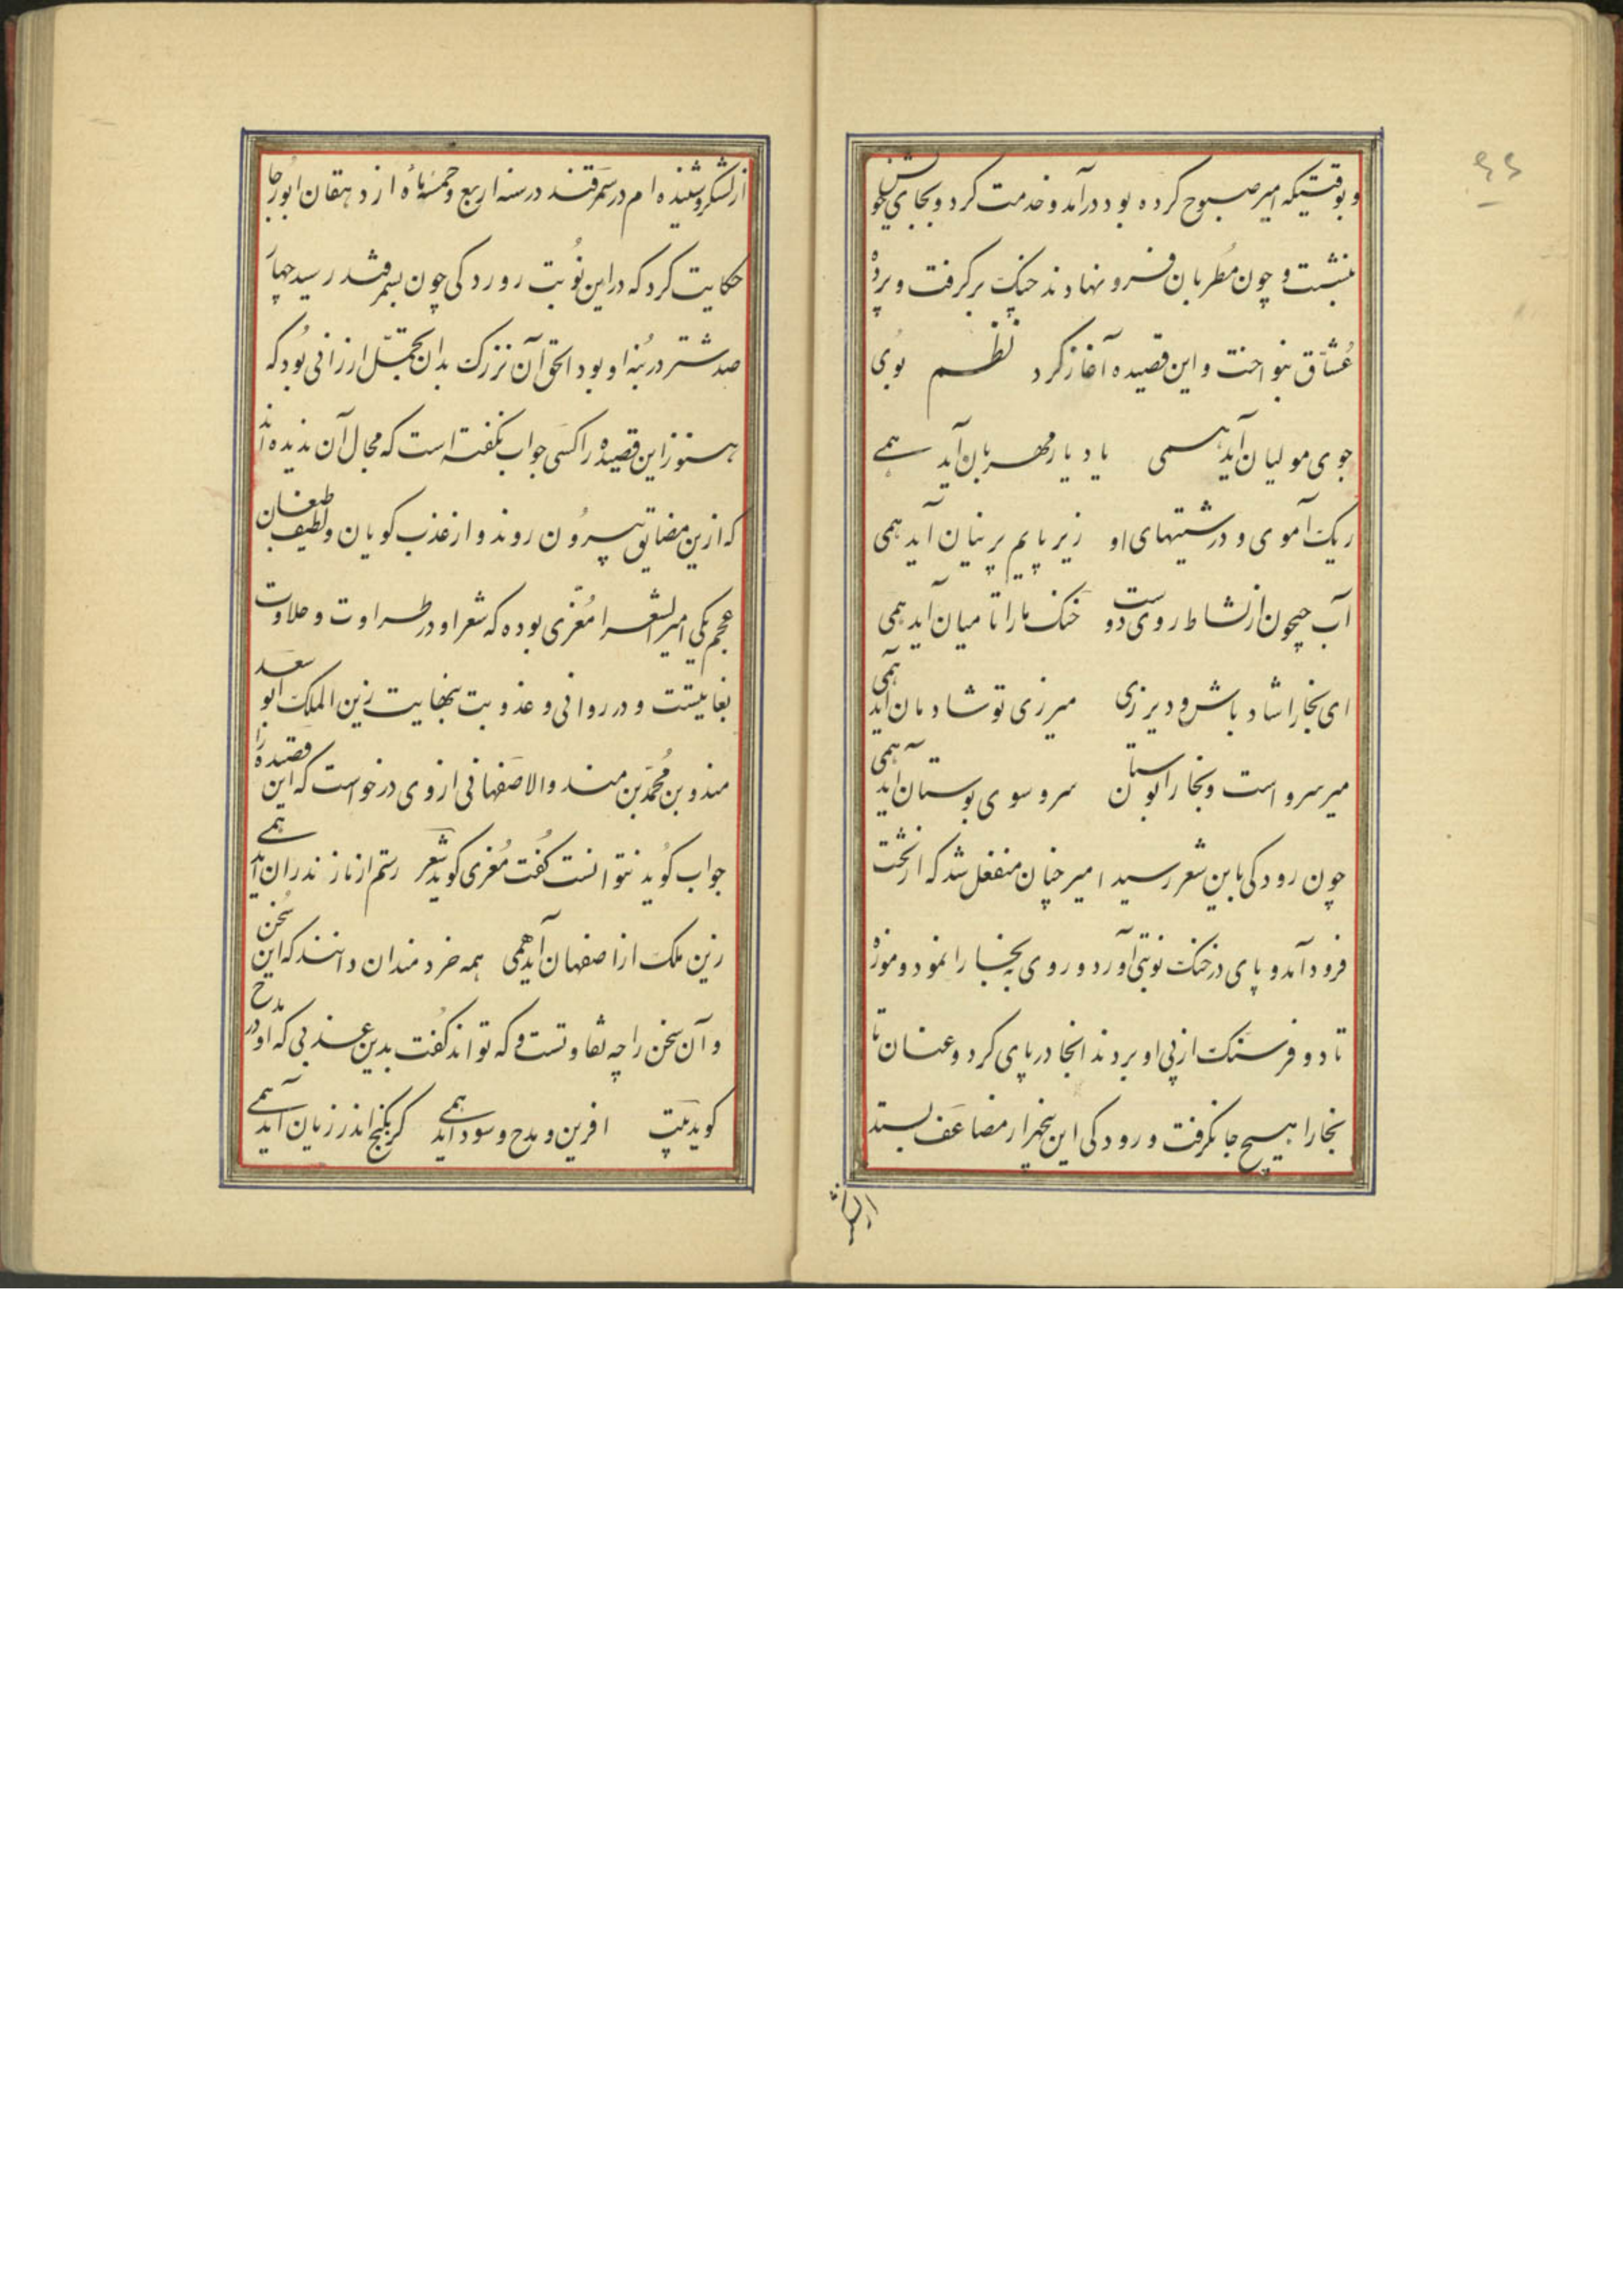 ۴۴
و بوقتیکه امیر صبوح کرده بود درآمد و خدمت کرد و بجای خویش
بنشست و چون مُطربان فرو نهادند چنک برکرفت و پردهٔ
عُشّاق بنواخت و این قصیده آغاز کرد نظم بُوی
جوی مولیان آید همی یاد یار مهربان آید همے
ریک آموی و درشتیهای او زیر پایم پرنیان آید همی
آب جیحون از نشاط روی دوست خنک ما را تا میان آید همی
ای بخارا شاد باش و دیر زی میر زی تو شادمان آید همی
میر سرو است و بخارا بوستان سرو سوی بوستان آید همی
چون رودکی باین شعر رسید امیر چنان منفعل شد که از تخت
فرود آمد و پای در خنک نوبتی آورد و روی به بخارا نمود و موزه
تا دو فرسنک از پی او بردند انجا در پای کرد و عنان تا
بخارا هیچ جا نکرفت و رودکی این پنجهزار مضاعف بستد
از لشکر
از لشکر و شنیده‌ام در سمرقند در سنه اربع و خمسمأة از دهقان ابورجا
حکایت کرد که در این نُوبت رودکی چون بسمرقند رسید چهار
صد شتر در بُنه او بود الحق آن بزرک بدان تجمّل ارزانی بُود که
هنوز این قصیده را کسی جواب نکفته است که مجال آن ندیده‌اند
که ازین مضایق بیرُون روند و از عذب کویان و لطیف طبعان
عجم یکی امیر الشعرا مُعزّی بوده که شعر او در طراوت و حلاوت
بغایتست و در روانی و عذوبت بنهایت زین الملک ابو سعد
هندو بن مُحمّد بن هندو الاصفهانی از وی درخواست که این قصیده را
جواب کُوید نتوانست کُفت مُعزی کوید شعر رستم از مازندران آید همے
زین ملک از اصفهان آید همی همه خردمندان دانند که این سُخن
و آن سخن را چه تفاوتست و که تواند کُفت بدین عذبی که او در مدح
کوید بیت افرین و مدح و سود آید همے کر بکنج اندر زیان آید همے